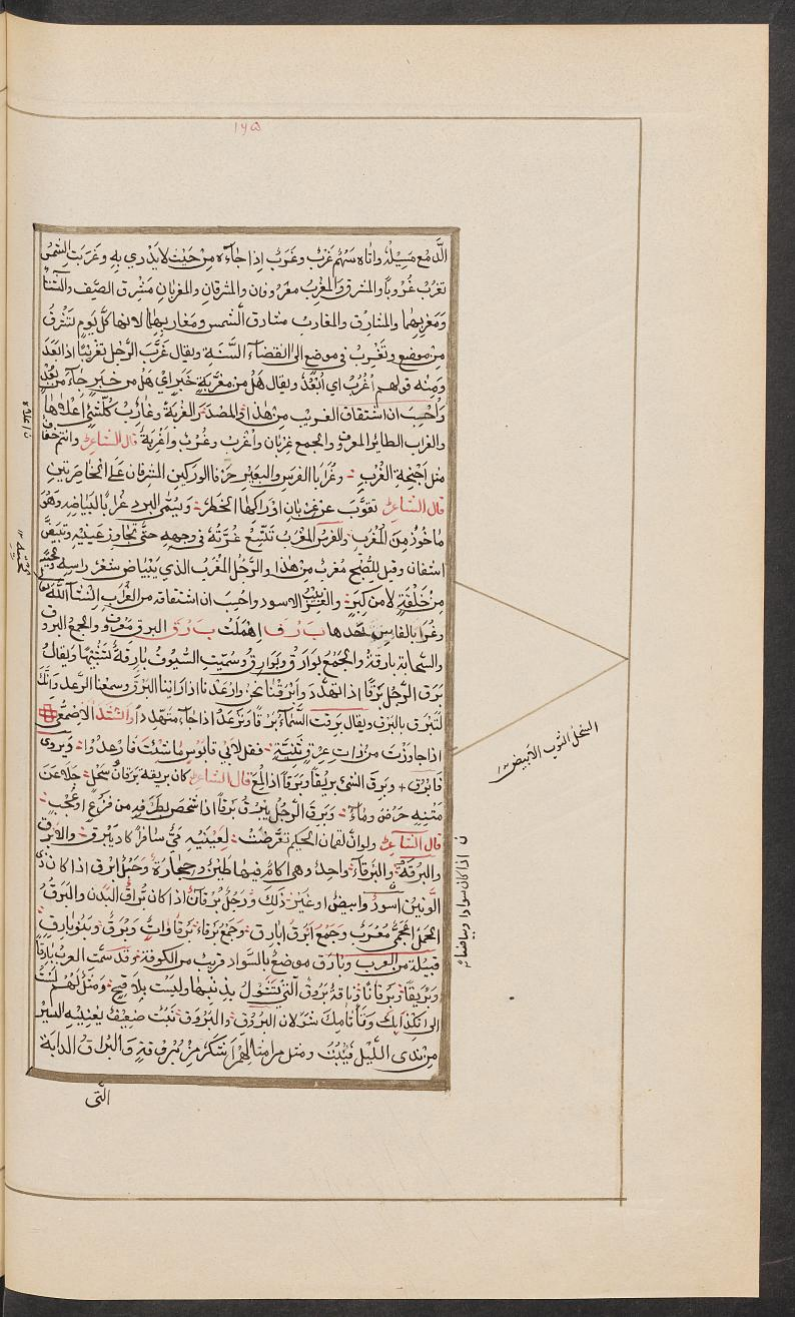 ١٦٥
الدمع مسيله واتاه سهم غَرْب وغَرَب اذا جاءه من حيث لا يدري به وغربت الشمس
تغرب غروبا والمشرق والمغرب معروفان والمشرقان والمغربان مشرق الصيف والشتاء
ومغربهما والمشارق والمغارب مشارق الشمس ومغاربها لانها كل يوم تشرق
من موضع وتغرب في موضع الى انقضاء السنة ويقال غرّب الرجل تغريبا اذا بعد
ومنه قولهم اغرب اي ابعد ويقال هل من مغربة خبر اي هل من خبر جاء من بعد
واحسب ان اشتقاق الغريب من هذا المصدر الغربة وغارب كل شيء اعلاها
والغراب الطائر المعروف والجمع غربان واغرب وغرب واغربة قال الشاعر وانتم خفاف
مثل اجنحة الغرب وغرابا الفرس والبعير حرفا الوركين المشرفان على الخاصرتين
قال الشاعر تقوب عن غربان اوراكها الخطر ويسمى البرد غرابا لبياضه وهو
ماخوذ من المغرب والفرس المغرب تتسع غرته في وجهه حتى تجاوز عينيه وتبيض
اشفاره وقيل للصبح مغرب من هذا والرجل المغرب الذي يبياض شعر راسه ولحيته
من خلقة لا من كبر والغربيب الاسود واحسب ان اشتقاقه من الغراب
ب ر ف اهملت ب ر ق البرق معروف والجمع البروق
والسحابة بارقة والجمع بوارق وبوارق وسميت السيوف بارقة لتشبيها ويقال
برق الرجل برقا اذا تهدد وابرقنا نحن وارعدنا اذا راينا البرق وسمعنا الرعد وانك
لتبرق بالبرق ويقال برقت السماء برقا وترعد اذا جاء متهددا وانشد الاصمعي
اذا جاوزت من ذات عرق ثنية فقل لابي قابوس ما شئت فارعد ويروى
فابرق وبرق الشئ بريقا وبرقا اذا لمع قال الشاعر كان بريقه برقان سحل جلا عن
متنه حرض وماء وبرق الرجل يبرق برقا اذا شخص بطرفه من فزع او عجب
قال الشاعر ولو ان لقمان الحكيم تعرضت لعينيه مي سافرا كاد يبرق والابرق
والبرقة والبرقاء واحد وهي اكام فيها طين وحجارة وجبل ابرق اذا كان ذي
الونين اسود وابيض او غير ذلك ورجل برقان اذا كان براق البدن والبرق
الحمل اعجمي معرب وجمع ابرق ابارق وجمع برقاء برقاوات وبرق وبنو بارق
قبيلة من العرب وبارق موضع بالسواد قريب من الكوفة وقد سمت العرب بارقا
وبريقا وبرقانا وناقة بروق التي تشول بذنبها وليست بلاقح ومثل لهم لست
شولان البروق والبروق نبت ضعيف
من ندى الليل فينبت ومثل من امثالهم اشكر من بروقة والبراق الدابة
التي
السحل الثوب الابيض
ن اذا كان سوادا وبياضا